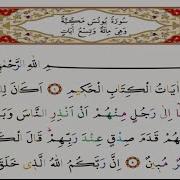 سُورَةُ يُونُسَ مَكِّيَّةٌ
وَهِيَ مِائَةٌ وَتِسْعُ آيَاتٍ
اللهِ الرَّحْمٰ
آيَاتُ الْكِتَابِ الْحَكِيمِ ١ اَكَانَ لِ
إِلٰى رَجُلٍ مِنْهُمْ اَنْ اَنْذِرِ النَّاسَ وَبَ
هُمْ قَدَمَ صِدْقٍ عِنْدَ رَبِّهِمْ قَالَ الْكَ
مُبِينٌ ٢ اِنَّ رَبَّكُمُ اللهُ الَّذِى خَلَقَ